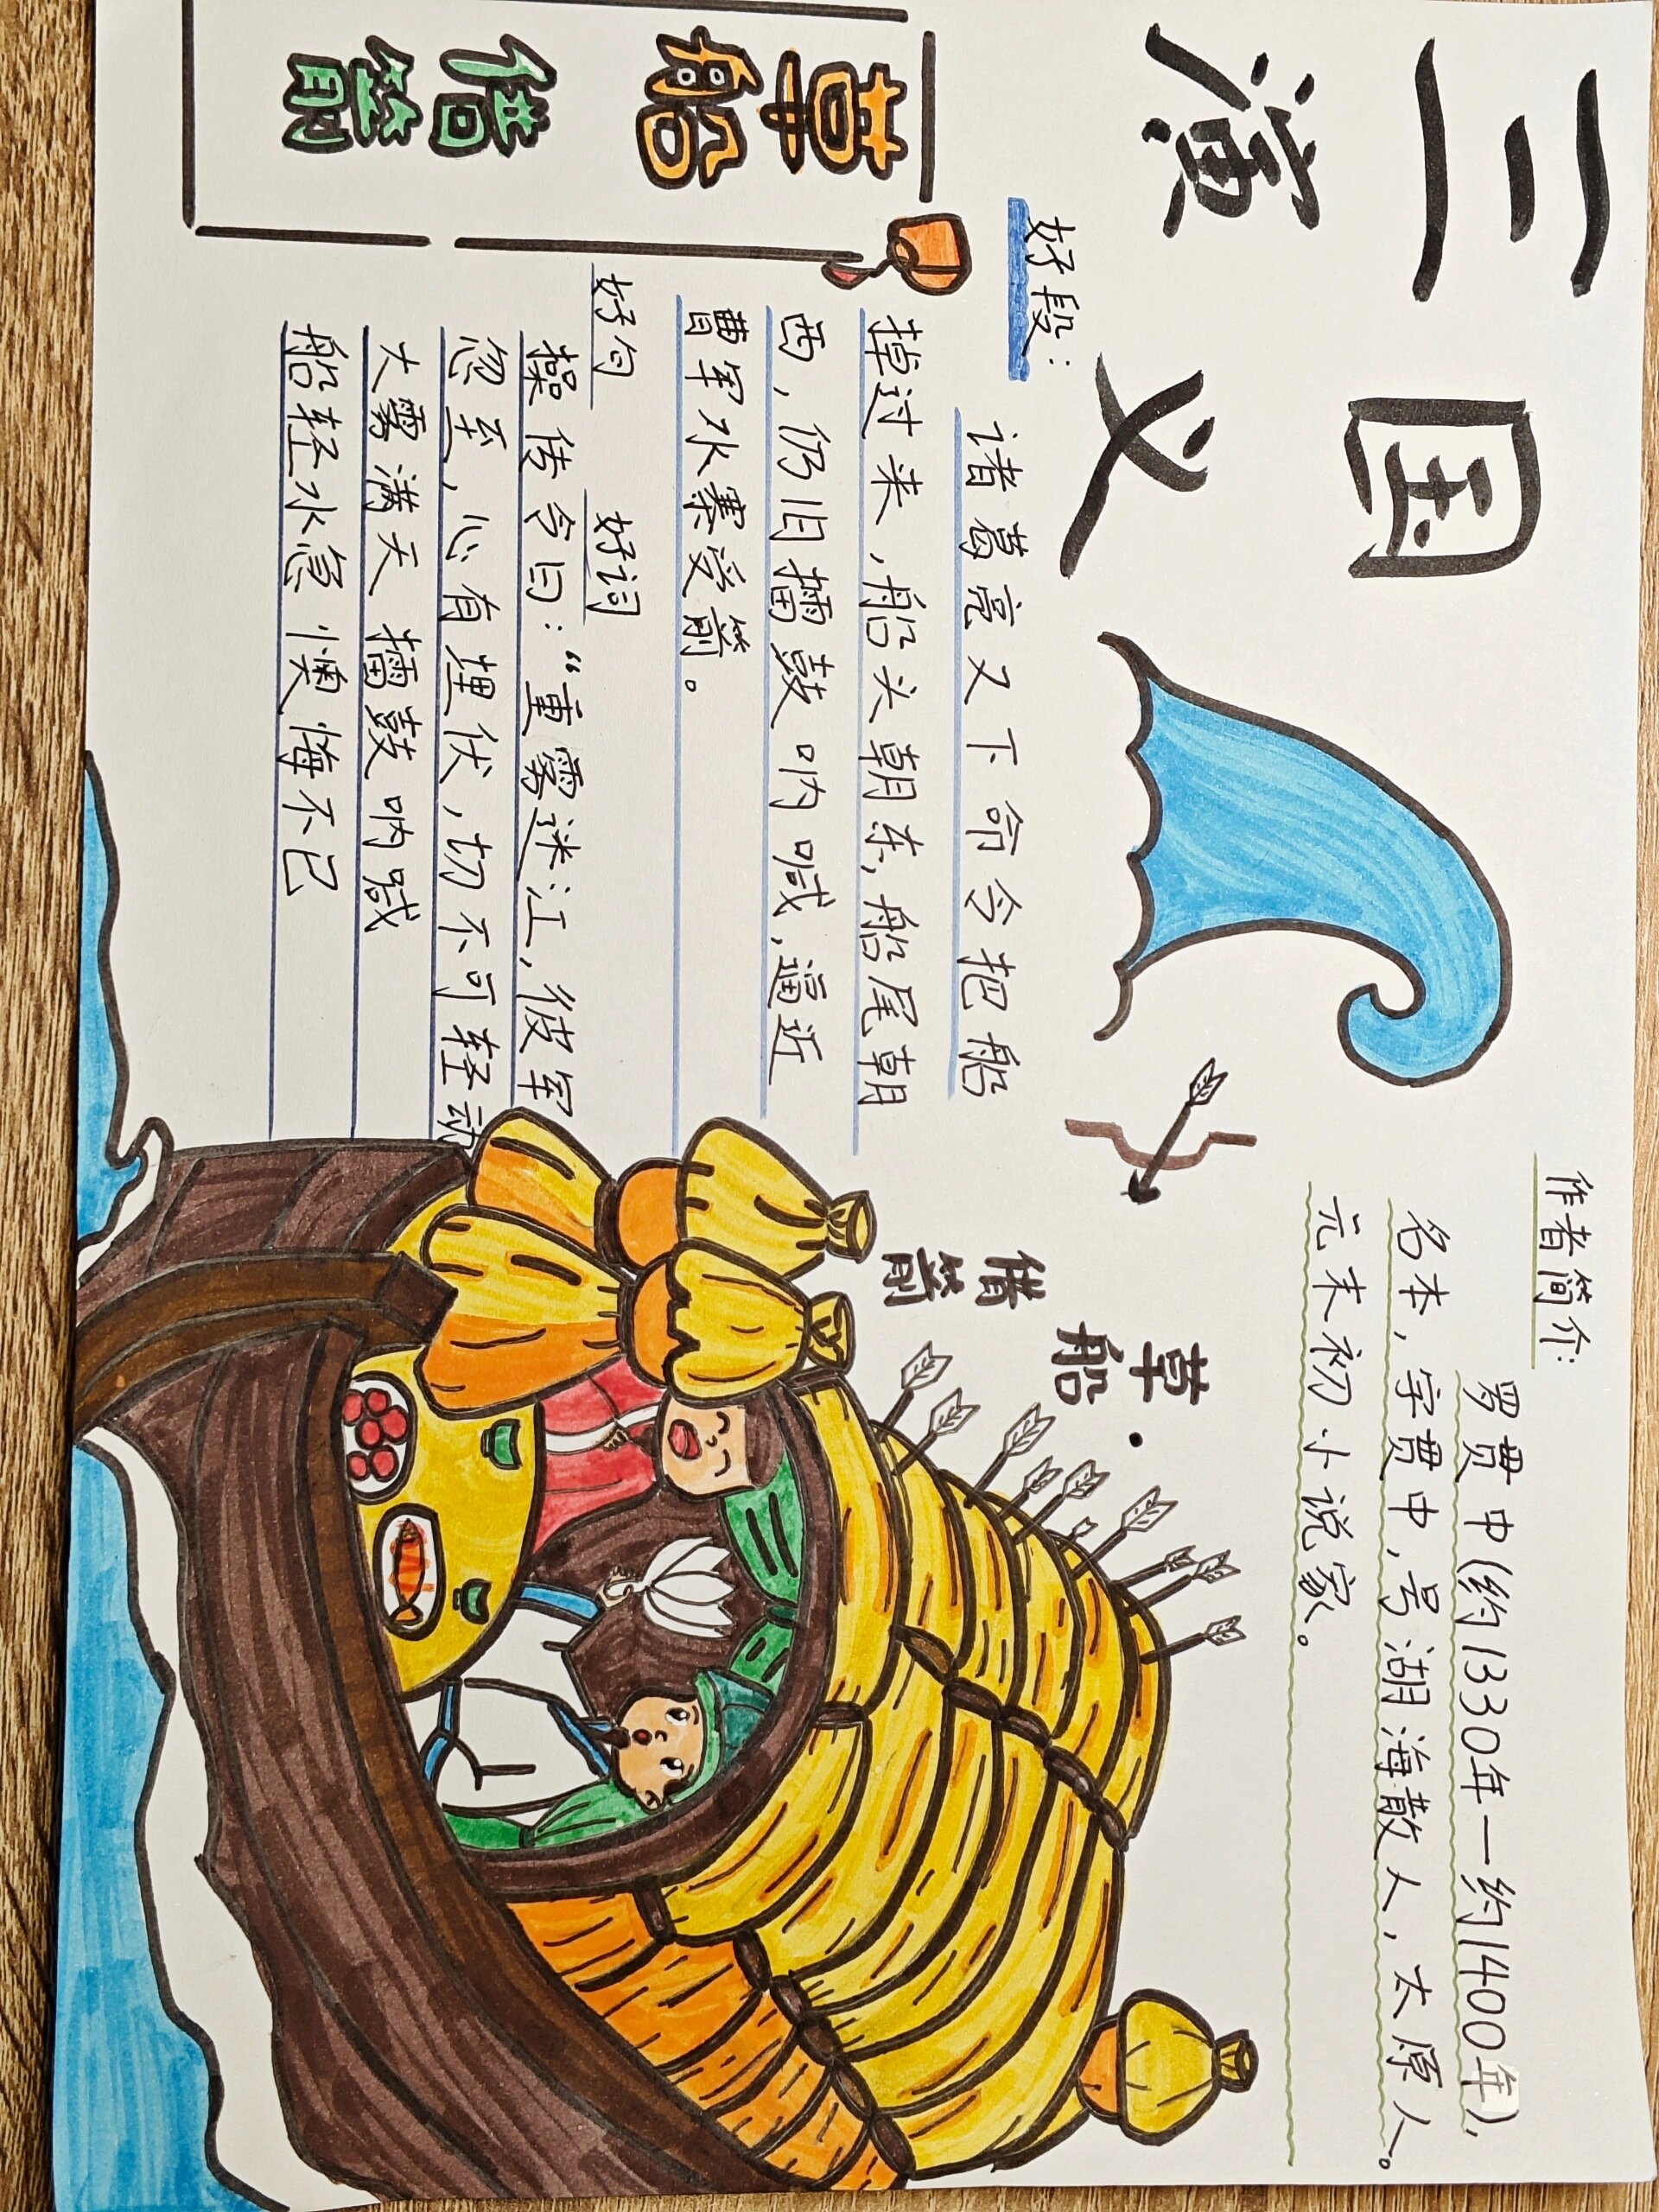 三国
演义
作者简介:
罗贯中(约1330年一约1400年),
名本,字贯中,号湖海散人,太原人。
元末初小说家。
好段:
诸葛亮又下命令把船
掉过来,船头朝东,船尾朝
西,仍旧擂鼓呐喊,逼近
曹军水寨受箭。
草船
借箭
草船
借箭
好句 好词
操传令曰:“重雾迷江,彼军
忽至,心有埋伏,切不可轻动
大雾满天 擂鼓呐喊
船轻水急 懊悔不已